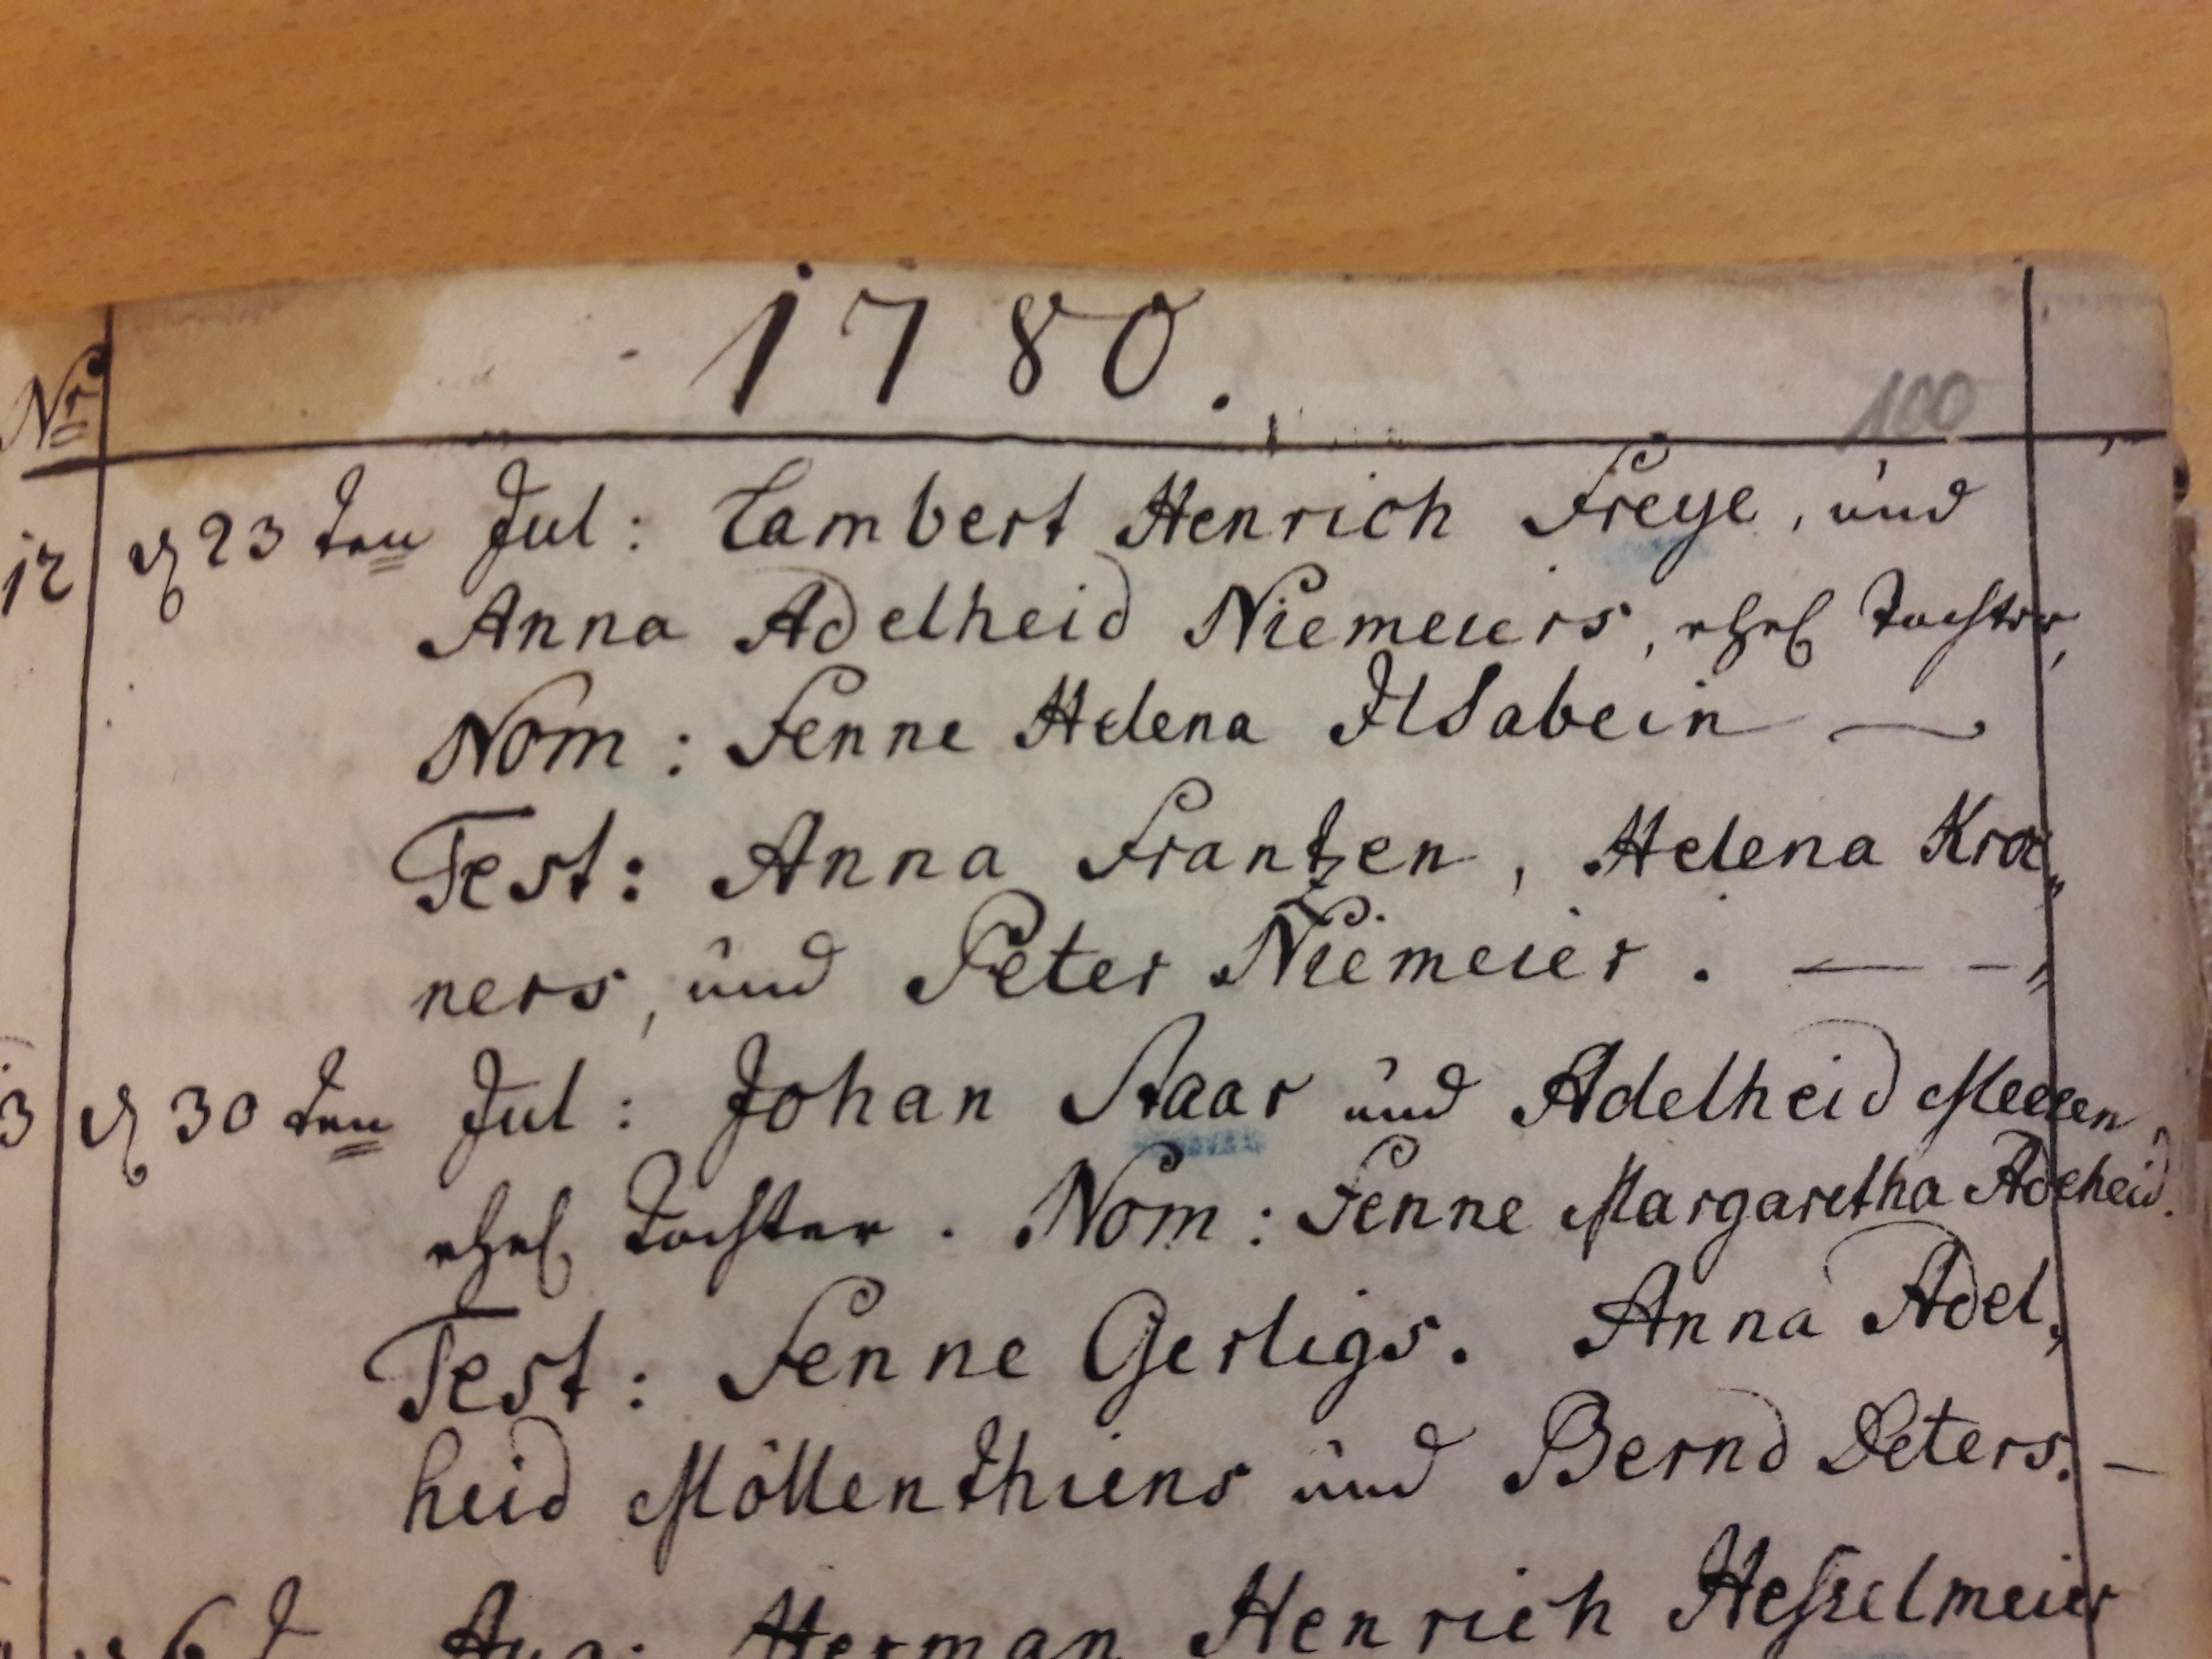 1780.
Nr.
100
12 d 23ten Jul: Lambert Henrich Freye, und
Anna Adelheid Niemeiers, ehel Tochter,
Nom: Fenne Helena Ilsabein —
Test: Anna Frantzen, Helena Kroe„
ners, und Peter Niemeier. — -
3 d 30ten Jul: Johan Staar und Adelheid
ehel Tochter. Nom: Fenne Margaretha Adeheid.
Test: Fenne Gerligs. Anna Adel,
heid Möllenthiens und Bernd Peters. —
6 Aug: Herman Henrich Hesselmeier